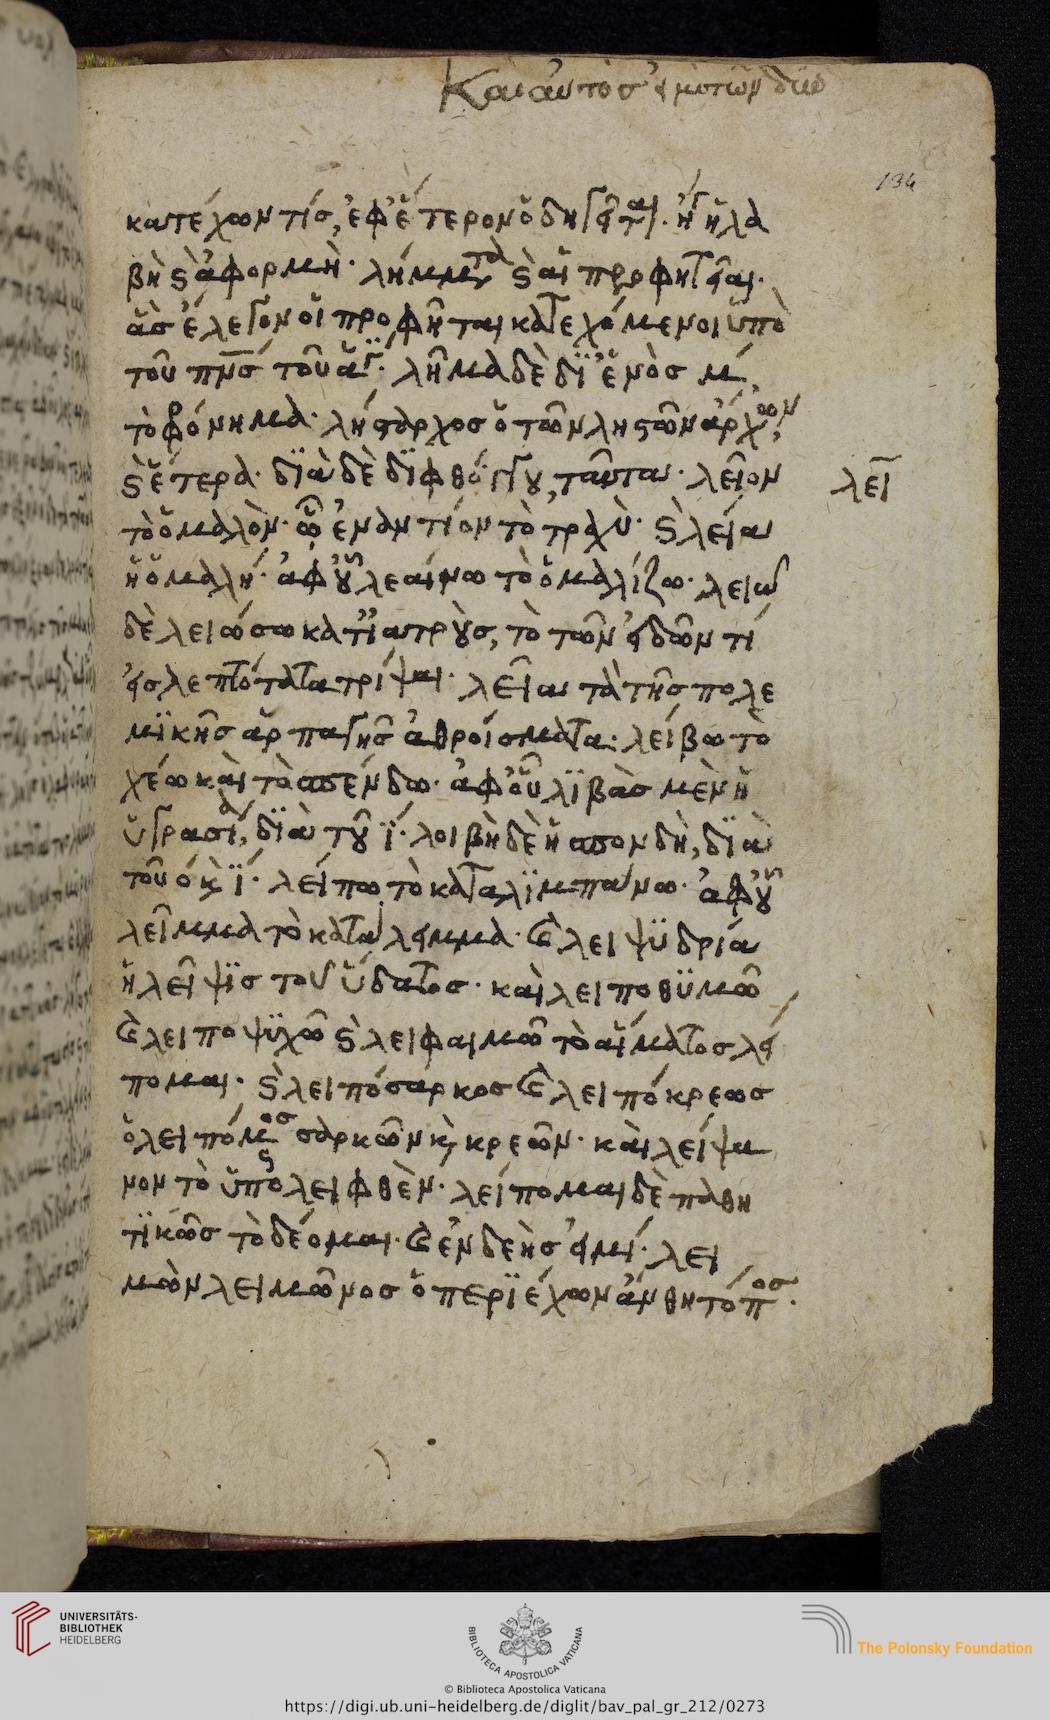 Καὶ αὐτὸς
134
κατέχων τίς, ἐφ' ἕτερον ὁδηγεῖται. ἢ ἡ λα
βὴ καὶ ἀφορμή. λήμματα καὶ αἱ προφητεῖαι.
ἃς ἔλεγον οἱ προφῆται κατεχόμενοι ὑπὸ
τοῦ πνς τοῦ ἁγ. λῆμα δὲ δι' ἑνὸς μ
τὸ φρόνημα. λήσταρχος ὁ τῶν ληστῶν ἄρχων,
καὶ ἕτερα. διὰ δὲ διφθόγγου, ταῦτα. λεῖον
λει
τὸ ὁμαλόν. ᾧ ἐναντίον τὸ τραχύ. καὶ λεία
ἡ ὁμαλή. ἀφ' οὗ λεαίνω τὸ ὁμαλίζω. λειῶ
δὲ λειώσω κατ' ἰατροὺς, τὸ τῶν εἰδῶν τι
εἰς λεπτότατα τρίψαι. λεία τὰ τῆς πολε
μικῆς ἁρπαγῆς ἀθροίσματα. λείβω τὸ
χέω καὶ τὸ σπένδω. ἀφ' οὗ λιβὰς μὲν ἡ
ὑγρασία, διὰ τοῦ ι. λοιβὴ δὲ ἡ σπονδὴ, διὰ
τοῦ ο κ ι. λείπω τὸ καταλιμπάνω. ἀφ' οὗ
λεῖμμα τὸ κατάλειμμα. καὶ λειψυδρία
ἡ λεῖψις τοῦ ὕδατος. καὶ λειποθυμῶ
καὶ λειποψυχῶ καὶ λειφαιμῶ τὸ αἵματος λεί
πομαι. καὶ λειπόσαρκος καὶ λειπόκρεως
ὁ λειπόμενος σαρκῶν κ κρεῶν. καὶ λείψα
νον τὸ ὑπολειφθέν. λείπομαι δὲ παθη
τικῶς τὸ δέομαι. καὶ ἐνδεής εἰμι. λει
μὼν λειμῶνος ὁ περιέχων ἄνθη τόπος.
UNIVERSITÄTS-
BIBLIOTHEK
HEIDELBERG
BIBLIOTECA APOSTOLICA VATICANA
The Polonsky Foundation
© Biblioteca Apostolica Vaticana
https://digi.ub.uni-heidelberg.de/diglit/bav_pal_gr_212/0273